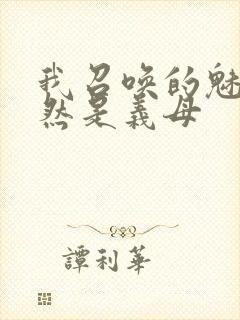 我召唤的魅
然是義母
譚利華